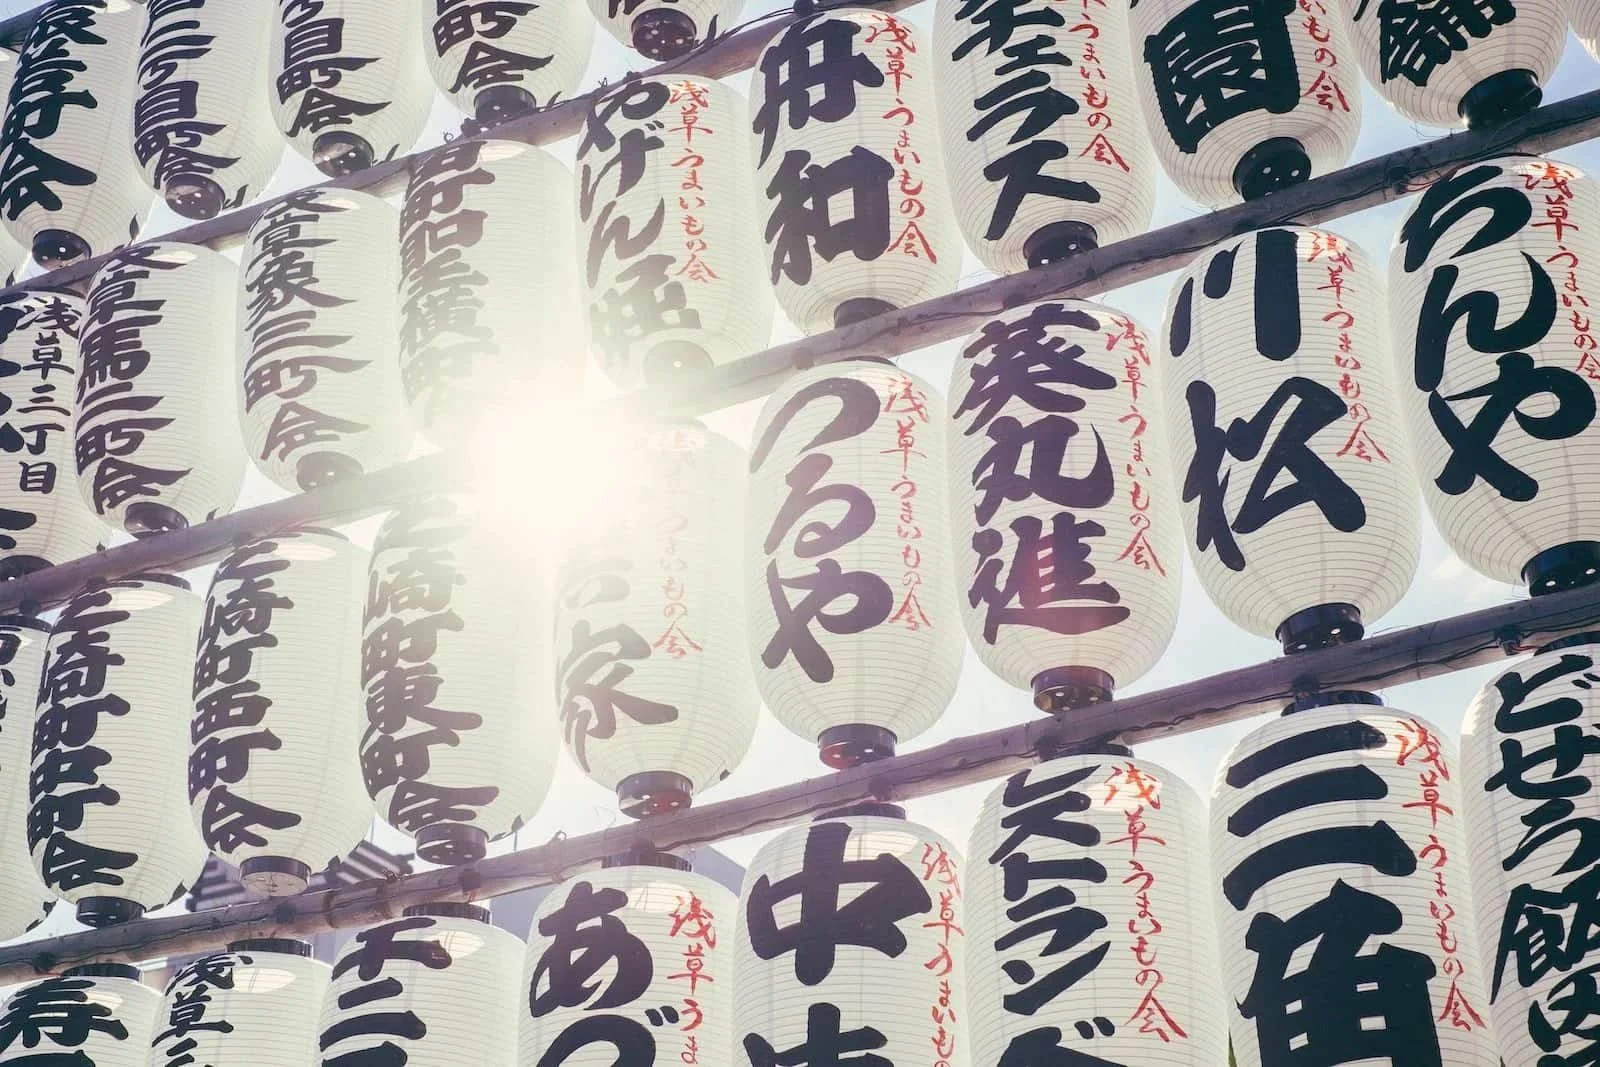 二丁目町会
三丁目町会
浅草うまいもの会
やげん堀
浅草うまいもの会
舟和
浅草うまいもの会
テラス
うまいもの会
園
いもの会
浅草三丁目
草馬二町会
草象三町会
浅草うまいもの会
つるや
浅草うまいもの会
葵丸進
浅草うまいもの会
川松
浅草うまいもの会
ちんや
浅草うまいもの会
芝崎町中町会
芝崎町西町会
芝崎町東町会
家
うまいもの会
浅草うま
あづ
浅草うまいもの
中清
浅草うまいもの会
レストラン
浅草うまいもの会
三角
どぜう飯田
寿
浅草三
千二